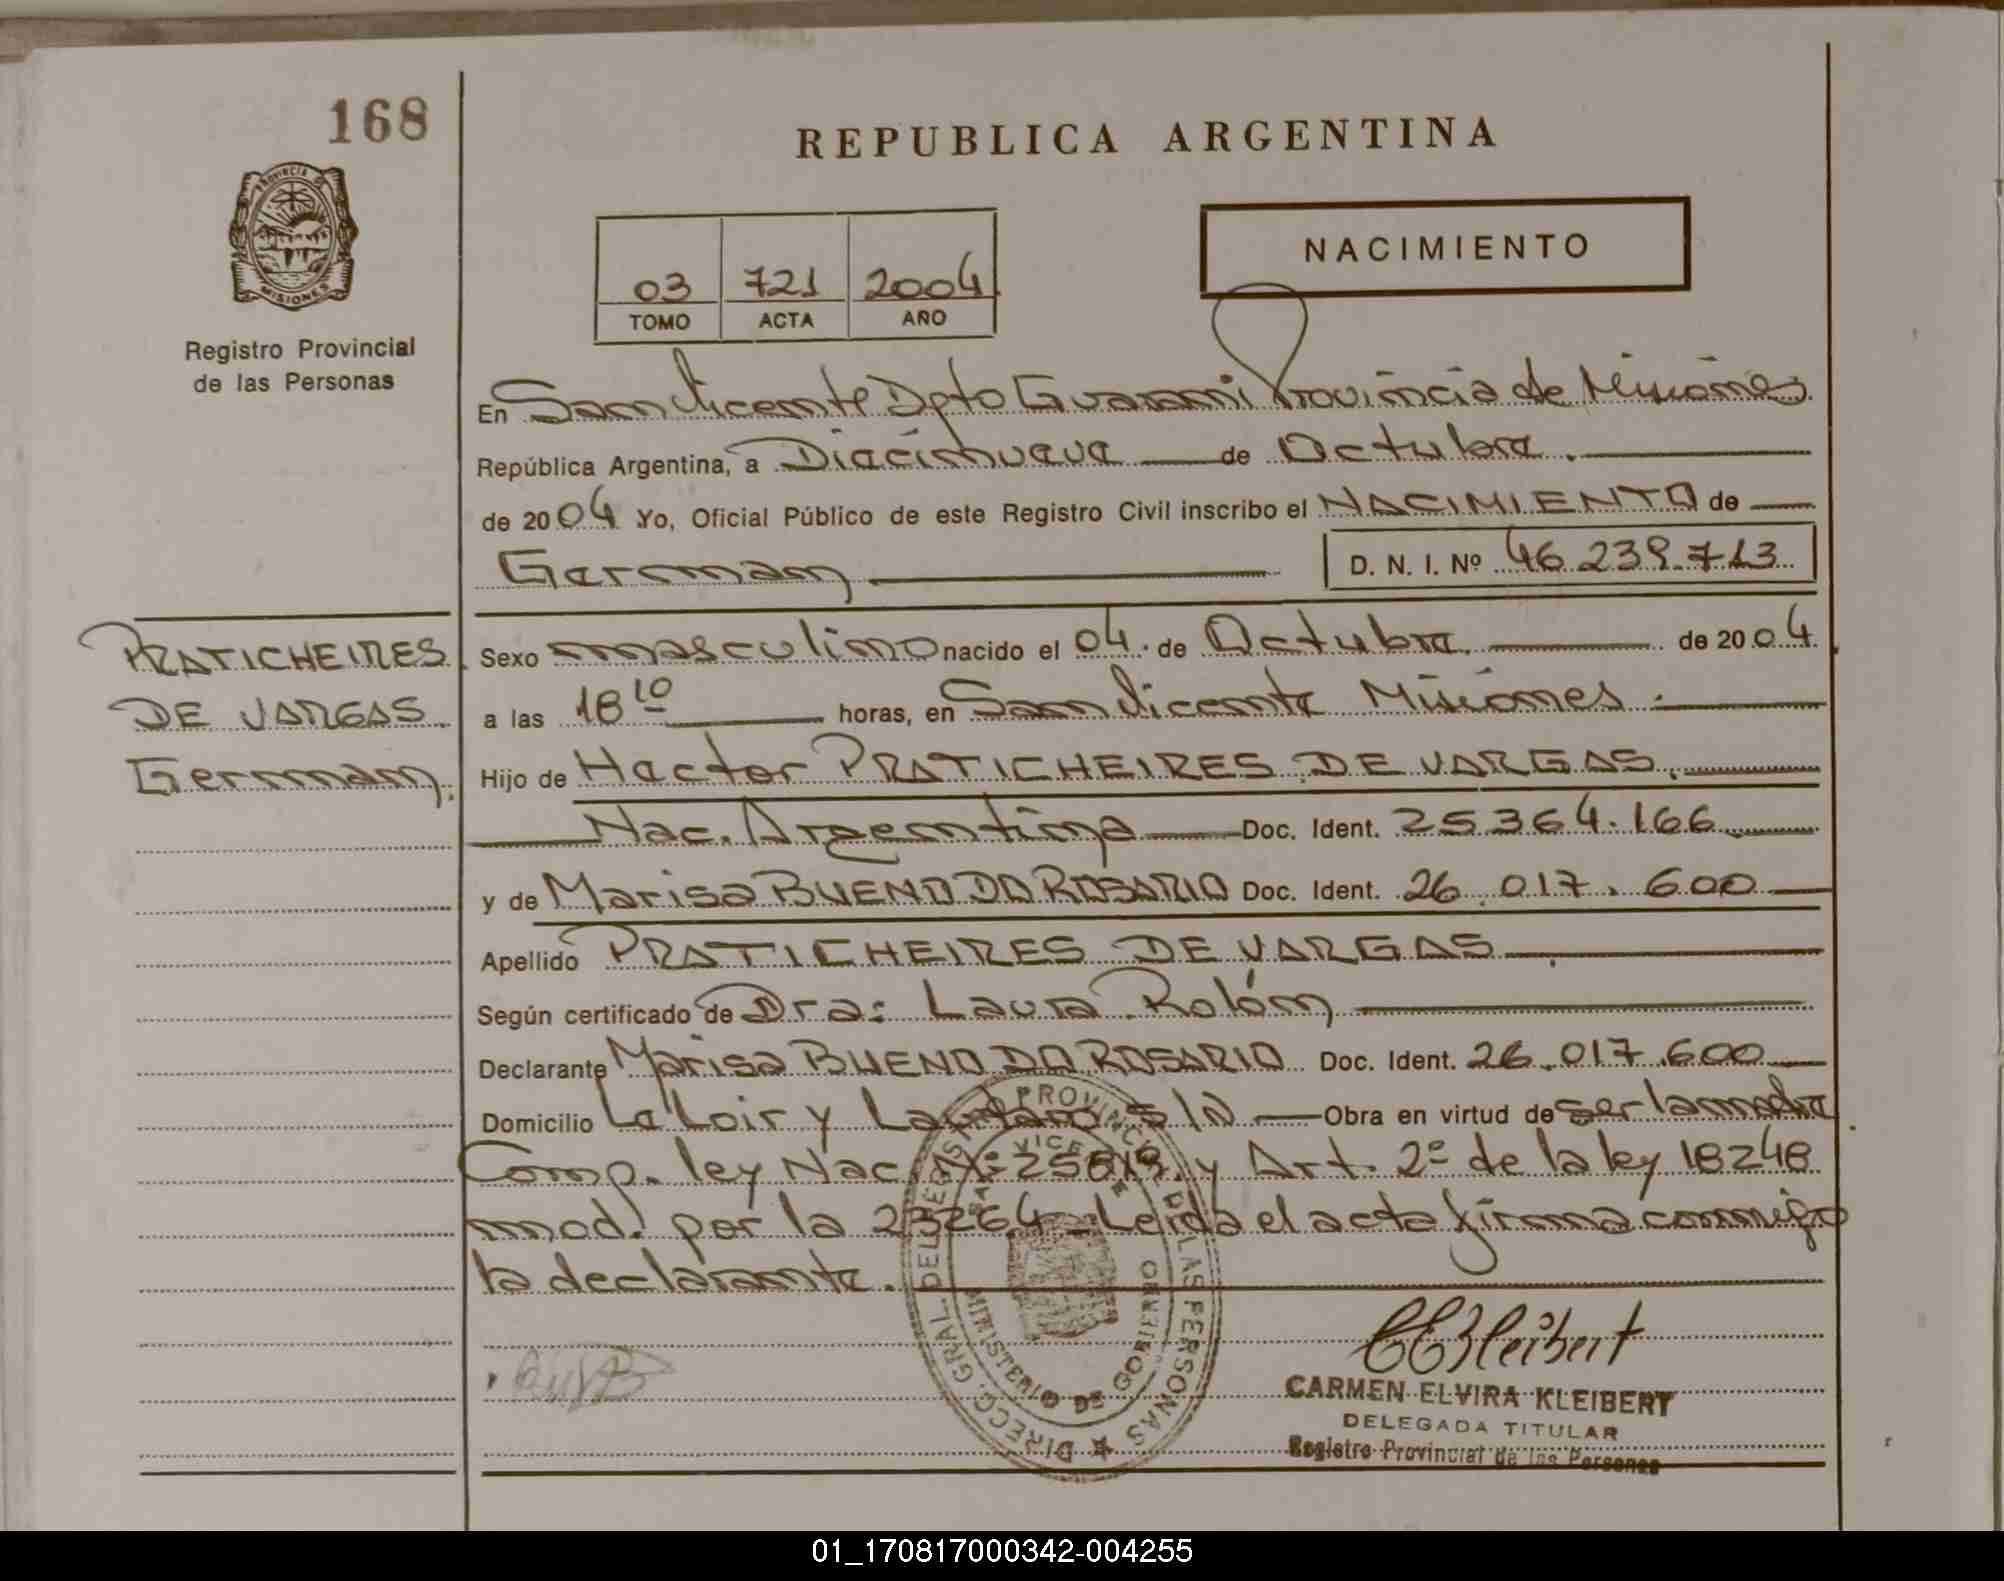 168
REPUBLICA ARGENTINA
PROVINCIA DE
MISIONES
Registro Provincial
de las Personas
NACIMIENTO
03 721 2004
TOMO ACTA AÑO
En San Vicente Dpto Guarani Provincia de Misiones.
República Argentina, a Diecinueve de Octubre.
de 2004 Yo, Oficial Público de este Registro Civil inscribo el NACIMIENTO de
German
D. N. I. Nº 46.239.713
PRATICHEIRES
DE VARGAS
German.
Sexo masculino nacido el 04. de Octubre. de 2004.
a las 18 10 horas, en San Vicente Misiones.
Hijo de Hector PRATICHEIRES DE VARGAS.
Nac. Argentina Doc. Ident. 25364.166
y de Marisa BUENO DO ROSARIO Doc. Ident. 26.017.600
Apellido PRATICHEIRES DE VARGAS.
Según certificado de Dra: Laura Rolón
Declarante Marisa BUENO DO ROSARIO Doc. Ident. 26.017.600
Domicilio La Loir y Lautaro s/n Obra en virtud de ser la madre
Comp. ley Nac. Nº 25819 y Art. 2º de la ley 18248
mod. por la 23264 - Leida el acta firma conmigo
la declarante.
DIRECC. GRAL. DEL REGIST. PROVINC. DE LAS PERSONAS
MINISTERIO DE GOBIERNO
CEKleibert
CARMEN ELVIRA KLEIBERT
DELEGADA TITULAR
Registro Provincial de las Personas
01_170817000342-004255